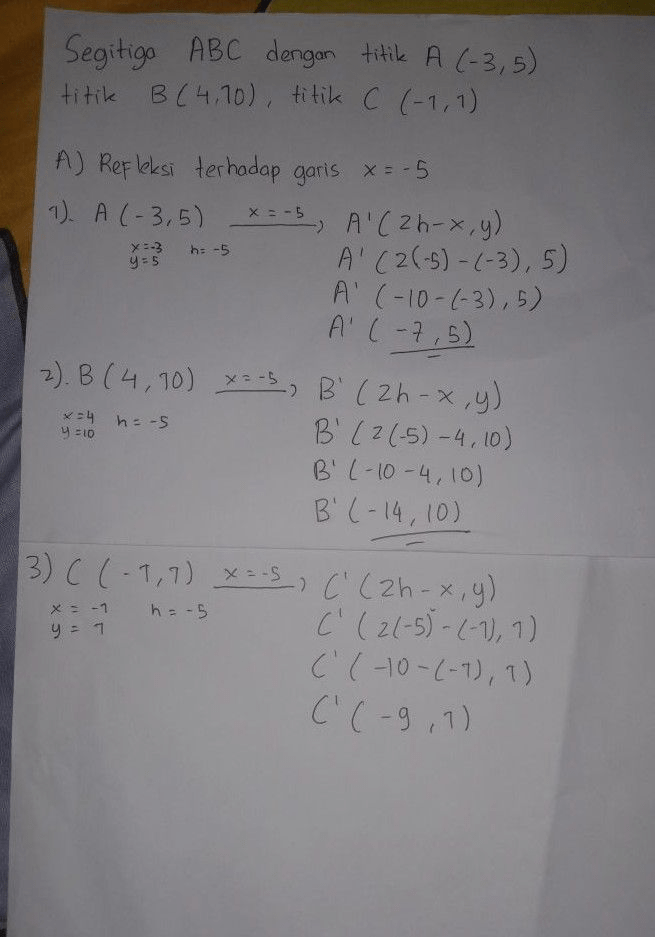 Segitiga ABC dengan titik A (-3,5)
titik B(4,10), titik C (-1,1)
A) Refleksi terhadap garis x = -5
1). A (-3,5) x = -5 → A' (2h-x, y)
x=-3 h= -5
y=5
A' (2(-5) -(-3), 5)
A' (-10-(-3), 5)
A' (-7, 5)
2). B (4, 10) x = -5 → B' (2h-x, y)
x=4 h = -5
y=10
B' (2(-5) -4, 10)
B' (-10-4, 10)
B' (-14, 10)
3) C (-1,1) x = -5 → C' (2h-x, y)
x = -1 h = -5
y = 1
C' (2(-5) -(-1), 1)
C' (-10-(-1), 1)
C' (-9, 1)